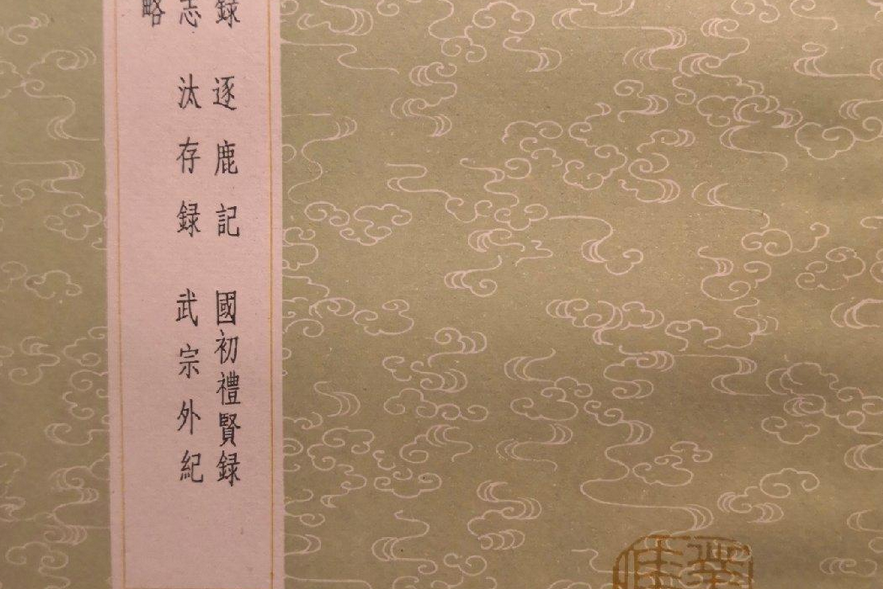 録 逐鹿記 國初禮賢録
志 汰存録 武宗外紀
略